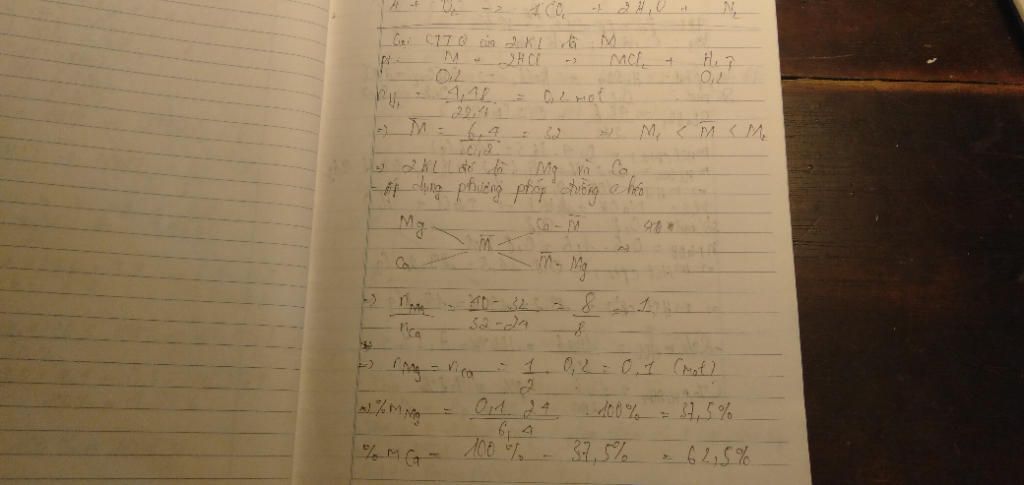 A + O₂ → 1CO₂ + 2H₂O + N₂
Gọi CTTQ của 2KL là M
pt: M + 2HCl → MCl₂ + H₂↑
0,2 0,2
nH₂ = 4,48 / 22,4 = 0,2 mol
=) M̄ = 6,4 / 0,2 = 32 => M₁ < M̄ < M₂
=> 2KL đó là Mg và Ca
- Áp dụng phương pháp đường chéo
Mg Ca - M̄ 40
M̄
Ca M̄ - Mg
=) nMg / nCa = 40 - 32 / 32 - 24 = 8 / 8 = 1
=) nMg = nCa = 1 / 2 . 0,2 = 0,1 (mol)
=> %mMg = 0,1 . 24 / 6,4 100% = 37,5%
%mCa = 100% - 37,5% = 62,5%